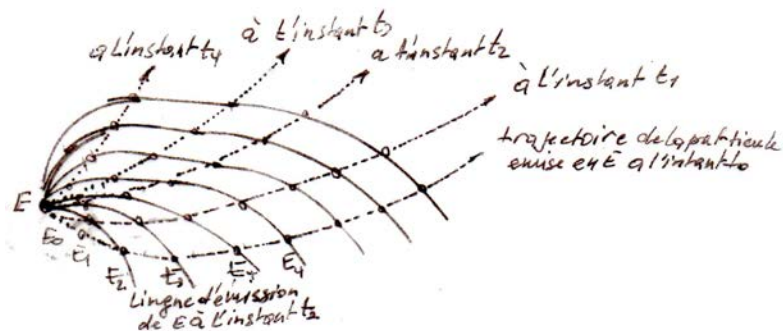 a L'instant t4
à t'instant t3
a t'instant t2
à L'instant t1
trajectoire de la particule
emise en E a l'intant to
E
E0
E1
E2
E3
E4
Lingne d'émission
de E à L'instant t2